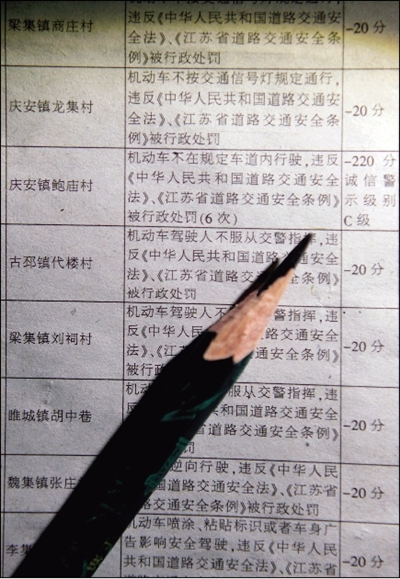 梁集镇商庄村
违反《中华人民共和国道路交通安
全法》、《江苏省道路交通安全条
例》被行政处罚
-20分
庆安镇龙集村
机动车不按交通信号灯规定通行,
违反《中华人民共和国道路交通安
全法》、《江苏省道路交通安全条
例》被行政处罚
-20分
庆安镇鲍庙村
机动车不在规定车道内行驶,违反
《中华人民共和国道路交通安全
法》、《江苏省道路交通安全条例》
被行政处罚(6次)
-220分
诚信警
示级别
C级
古邳镇代楼村
机动车驾驶人不服从交警指挥,违
反《中华人民共和国道路交通安全
法》、《江苏省道路交通安全条例》
被行政处罚
-20分
梁集镇刘祠村
机动车驾驶人不服从交警指挥,违
反《中华人民共和国道路交通安全
法》、《江苏省道路交通安全条例》
被行政
-20分
睢城镇胡中巷
机动 不服从交警指挥,违
反《 共和国道路交通安全
法》 苏省道路交通安全条例》
被 处罚
-20分
魏集镇张庄
逆向行驶,违反《中华人
民 国道路交通安全法》、《江苏省
道路交通安全条例》被行政处罚
-20分
李集
机动车喷涂、粘贴标识或者车身广
告影响安全驾驶,违反《中华人
民共和国道路交通安全法》、《江苏
-20分